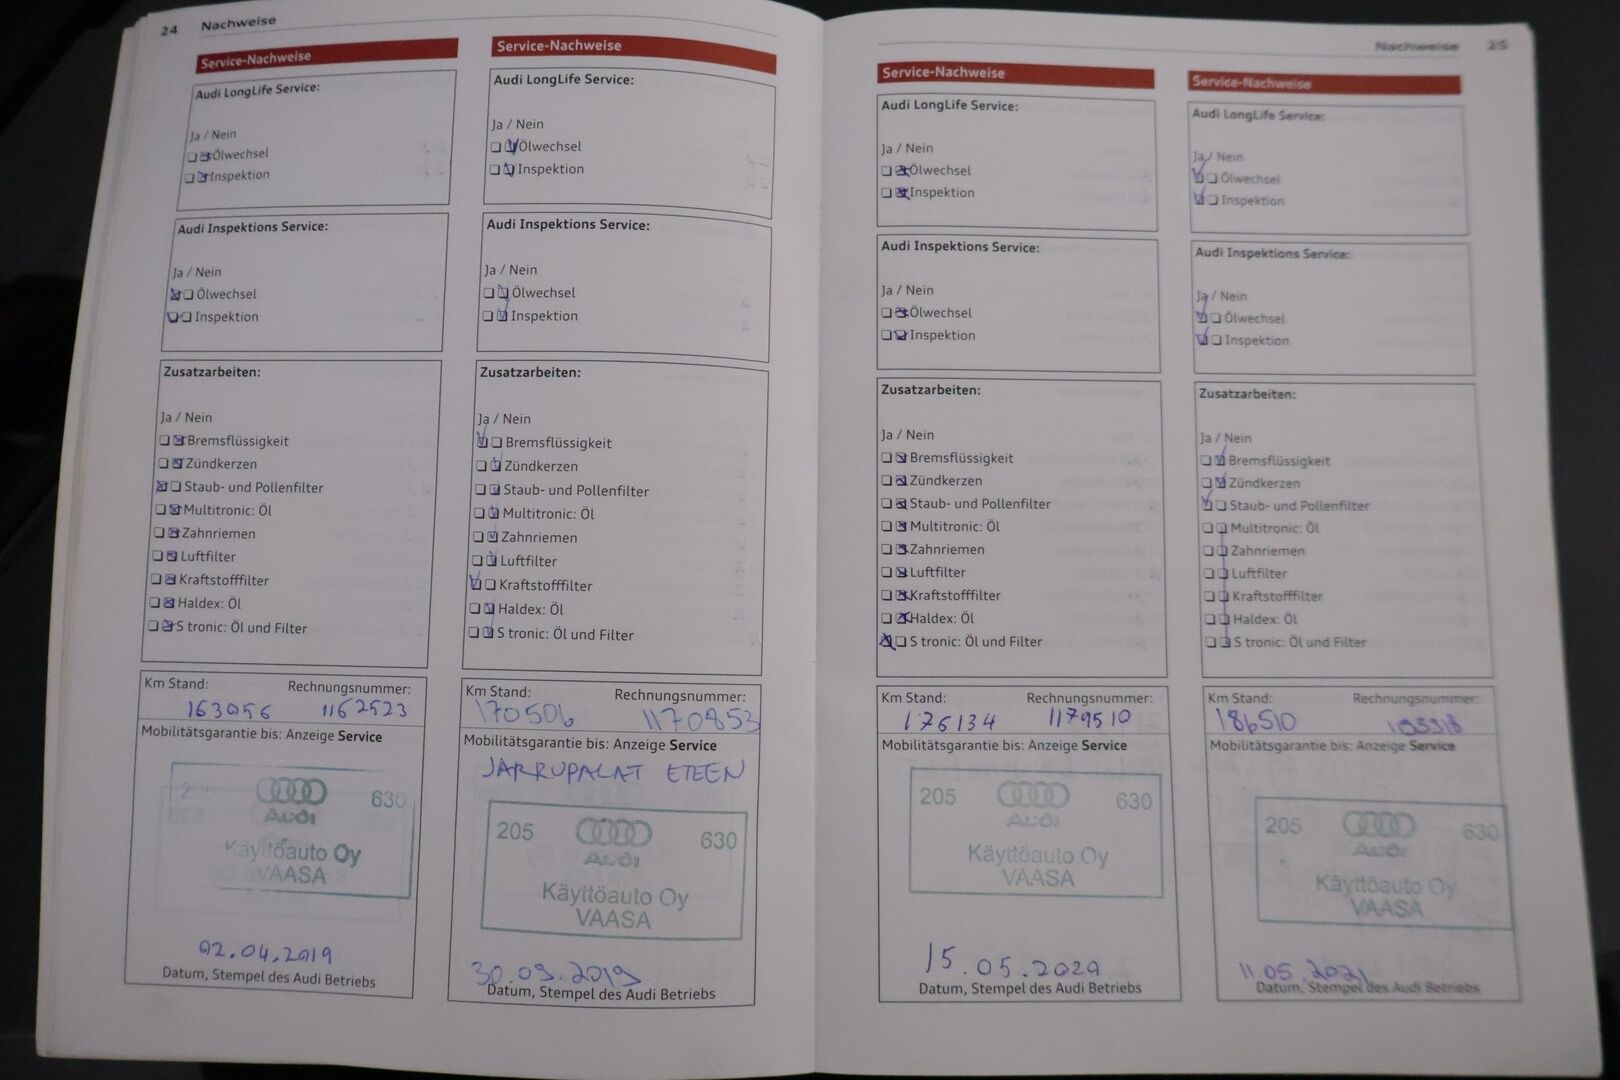 24 Nachweise
Service-Nachweise
Audi LongLife Service:
Ja / Nein
Ölwechsel
Inspektion
Audi Inspektions Service:
Ja / Nein
Ölwechsel
Inspektion
Zusatzarbeiten:
Ja / Nein
Bremsflüssigkeit
Zündkerzen
Staub- und Pollenfilter
Multitronic: Öl
Zahnriemen
Luftfilter
Kraftstofffilter
Haldex: Öl
S tronic: Öl und Filter
Km Stand: Rechnungsnummer:
163056 1162523
Mobilitätsgarantie bis: Anzeige Service
630
Audi
Käyttöauto Oy
VAASA
02.04.2019
Datum, Stempel des Audi Betriebs
Service-Nachweise
Audi LongLife Service:
Ja / Nein
Ölwechsel
Inspektion
Audi Inspektions Service:
Ja / Nein
Ölwechsel
Inspektion
Zusatzarbeiten:
Ja / Nein
Bremsflüssigkeit
Zündkerzen
Staub- und Pollenfilter
Multitronic: Öl
Zahnriemen
Luftfilter
Kraftstofffilter
Haldex: Öl
S tronic: Öl und Filter
Km Stand: Rechnungsnummer:
170506 1170853
Mobilitätsgarantie bis: Anzeige Service
JARRUPALAT ETEEN
205 630
Audi
Käyttöauto Oy
VAASA
30.09.2019
Datum, Stempel des Audi Betriebs
Service-Nachweise
Audi LongLife Service:
Ja / Nein
Ölwechsel
Inspektion
Audi Inspektions Service:
Ja / Nein
Ölwechsel
Inspektion
Zusatzarbeiten:
Ja / Nein
Bremsflüssigkeit
Zündkerzen
Staub- und Pollenfilter
Multitronic: Öl
Zahnriemen
Luftfilter
Kraftstofffilter
Haldex: Öl
S tronic: Öl und Filter
Km Stand: Rechnungsnummer:
176134 1179510
Mobilitätsgarantie bis: Anzeige Service
205 630
Audi
Käyttöauto Oy
VAASA
15.05.2020
Datum, Stempel des Audi Betriebs
Nachweise 25
Service-Nachweise
Audi LongLife Service:
Ja / Nein
Ölwechsel
Inspektion
Audi Inspektions Service:
Ja / Nein
Ölwechsel
Inspektion
Zusatzarbeiten:
Ja / Nein
Bremsflüssigkeit
Zündkerzen
Staub- und Pollenfilter
Multitronic: Öl
Zahnriemen
Luftfilter
Kraftstofffilter
Haldex: Öl
S tronic: Öl und Filter
Km Stand: Rechnungsnummer:
186510
Mobilitätsgarantie bis: Anzeige Service
205 630
Audi
Käyttöauto Oy
VAASA
11.05.2021
Datum, Stempel des Audi Betriebs